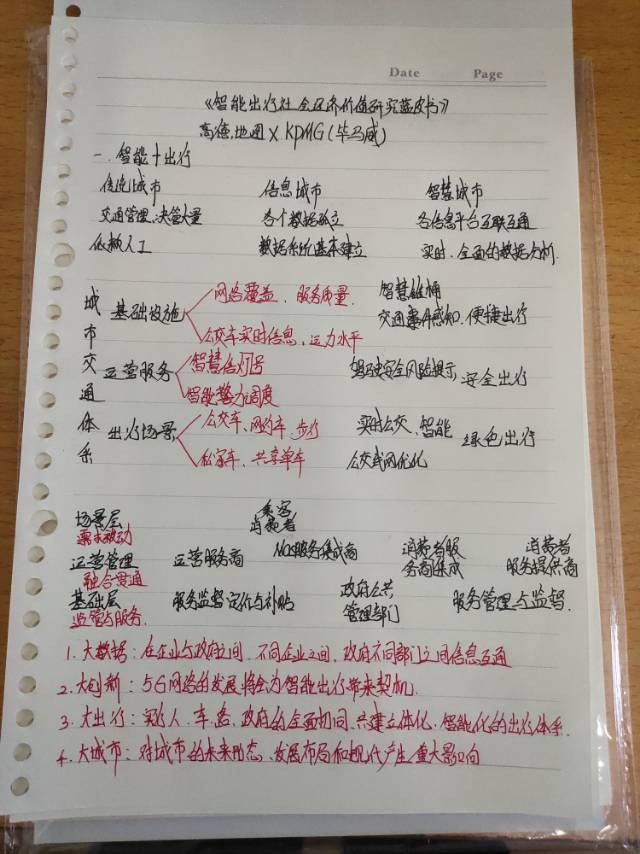 Date Page
《智能出行社会经济价值研究蓝皮书》
高德地图 X KPMG(毕马威)
一.智能+出行
传统城市 信息城市 智慧城市
交通管理、决策大量 各个数据孤立 各信息平台互联互通
依赖人工 数据系统基本建立 实时、全面的数据分析.
城市交通体系
基础设施 网络覆盖、服务质量 智慧锥桶
公交车实时信息、运力水平 交通事件感知、便捷出行
运营服务 智慧信灯号 驾驶安全风险提示、安全出行
智能警力调度
出行场景 公交车、网约车 步行 实时公交、智能 绿色出行
私家车、共享单车 公交线网优化
场景层 乘客
需求驱动 消费者
运营管理 运营服务商 MaaS服务集成商 消费者服 消费者
融合贯通 务商集成 服务提供商
基础层 服务监督定价与补贴 政府公共 服务管理与监督.
监管与服务. 管理部门
1.大数据:在企业与政府之间、不同企业之间、政府不同部门之间信息互通
2.大创新:5G网络的发展将会为智能出行带来契机.
3.大出行:实现人、车、路、政府的全面协同、共建立体化、智能化的出行体系.
4.大城市:对城市的未来形态、发展布局和现代产生重大影响